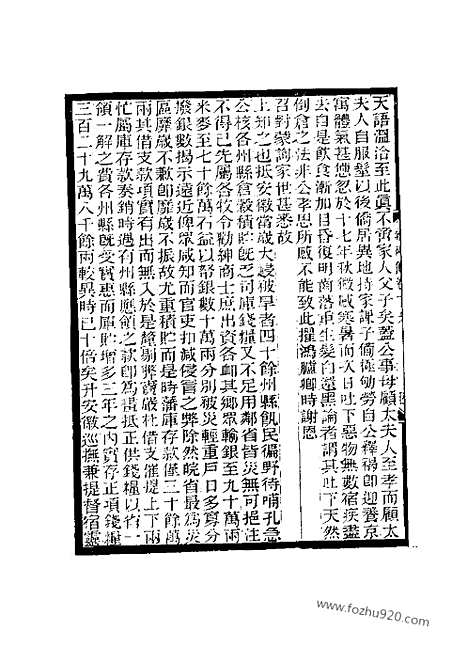 天語溫洽至此真不啻家人父子矣蓋公事母顧太夫人至孝而顧太
夫人自服髮以後偷居異地持家課子備極劬勞自公釋褐即迎養京
寓體氣甚憊忽於十七年秋微感寒暑而次日吐下惡物無數宿疾盡
去自是飲食漸加目昏復明齒落重生髮白還黑論者謂其吐下天然
倒倉之法非公孝思所感不能致此擢鴻臚卿時謝恩
召對蒙詢家世甚悉故
上知之也抵安徽當歲大祲被旱者四十餘州縣飢民徧野待哺孔急
公核各州縣倉穀積貯既乏司庫錢糧又不足用鄰省皆災無可挹注
不得已先屬各牧令勸紳商士庶出資各卹其鄉眾輸銀至九十萬兩
米麥至七十餘萬石益以帑銀數十萬兩分別被災輕重戶口多寡分
撥銀數揭示遠近俾眾咸知而官吏扣減侵冒之弊除然皖省最為災
區靡歲不歉卽靡歲不振故尤重積貯而是時藩庫存款僅三十餘萬
兩其借支款項實有出而無入於是釐剔弊竇嚴杜借支催提上下兩
忙屬庫存款奏銷時遇有州縣應領之款卽為畫抵正供錢糧以省一
領一解之費各州縣旣受實惠而庫貯增多三年之內實存正項錢糧
三百二十九萬八千餘兩較異時已十倍矣升安徽巡撫兼提督宿靈
www.fozhu920.com